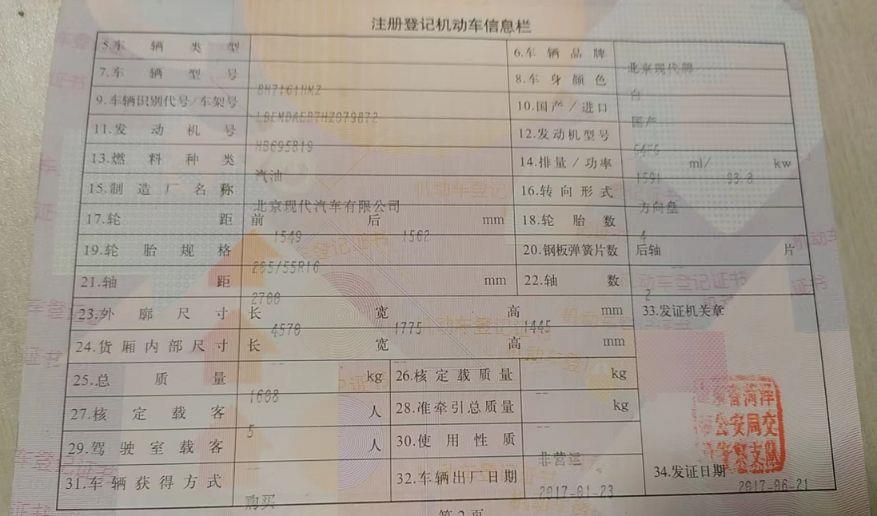 注册登记机动车信息栏
5.车辆类型 6.车辆品牌 北京现代牌
7.车辆型号 BH7161HMZ 8.车身颜色 白
9.车辆识别代号/车架号 10.国产/进口 国产
11.发动机号 HB695819 12.发动机型号
13.燃料种类 汽油 14.排量/功率 1591 ml/ 93.8 kw
15.制造厂名称 北京现代汽车有限公司 16.转向形式 方向盘
17.轮距 前 1549 后 1562 mm 18.轮胎数 4
19.轮胎规格 205/55R16 20.钢板弹簧片数 后轴 -- 片
21.轴距 2700 mm 22.轴数 2
23.外廓尺寸 长 4570 宽 1775 高 1445 mm 33.发证机关章
24.货厢内部尺寸 长 -- 宽 -- 高 -- mm
25.总质量 1688 kg 26.核定载质量 -- kg
27.核定载客 5 人 28.准牵引总质量 -- kg
29.驾驶室载客 -- 人 30.使用性质 非营运
31.车辆获得方式 购买 32.车辆出厂日期 2017-01-23 34.发证日期 2017-06-21
第2页